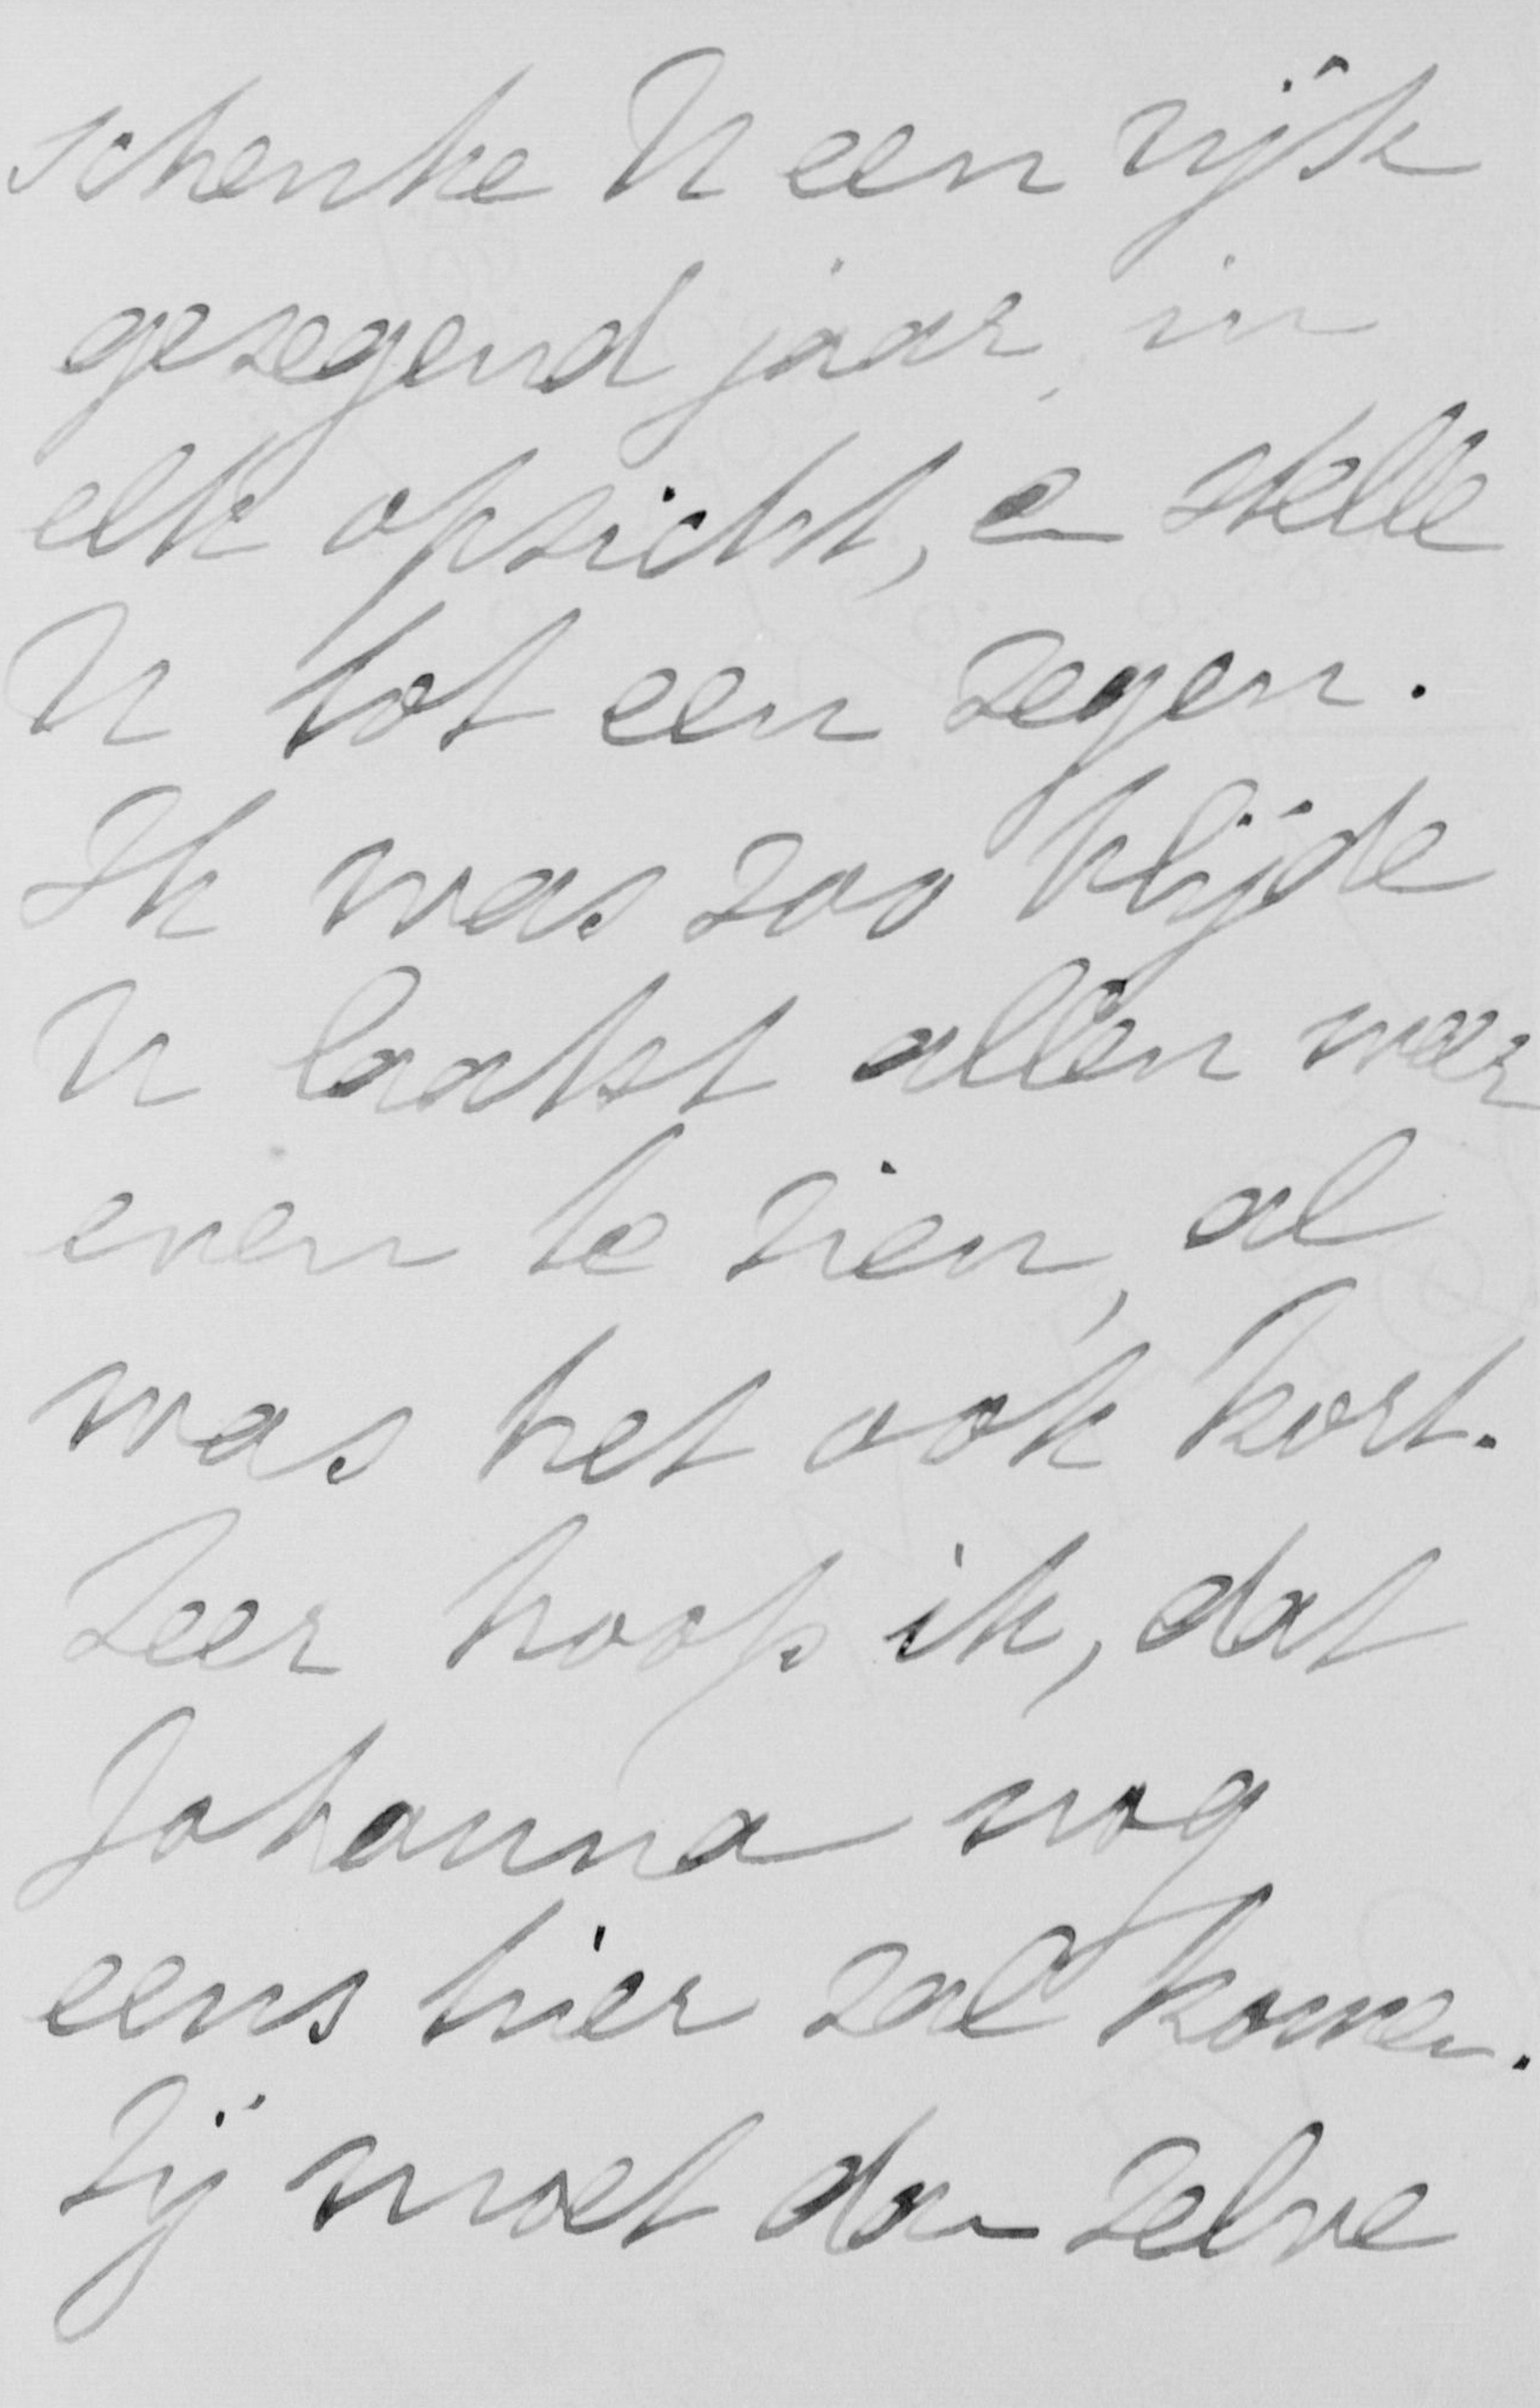 schenke U een rijk
gezegend jaar, in
elk opzicht, en stelle
U tot een zegen.
Ik was zoo blijde
U laatst allen weer
even te zien, al
was het ook kort.
Zeer hoop ik, dat
Johanna nog
eens hier zal komen.
Zij moet dan zelve